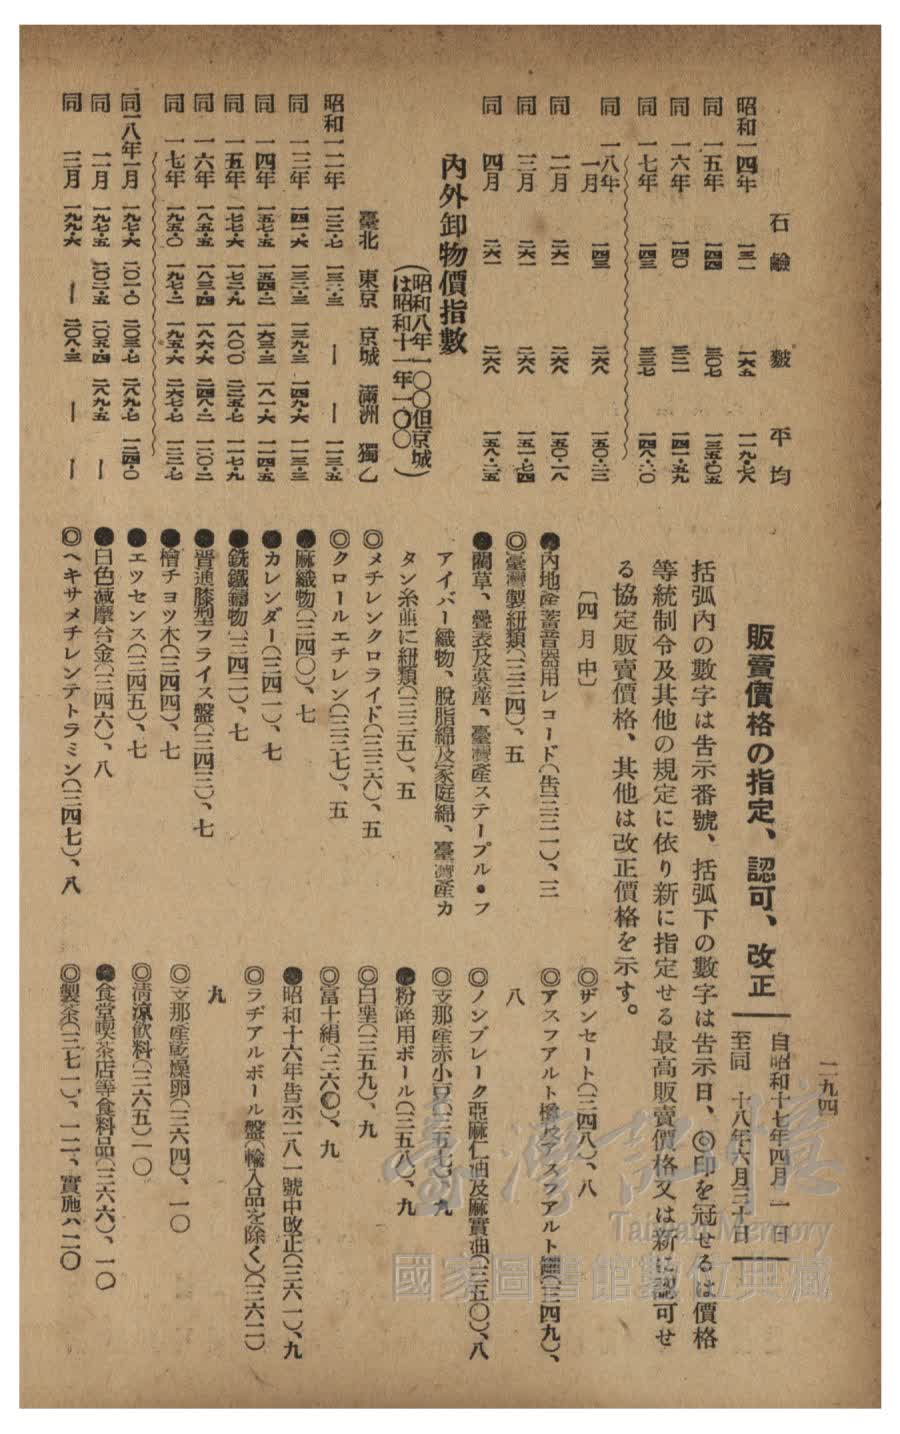 二九四
石鹼 麩 平均
昭和一四年 一三一 一六五 一一九・七八
同 一五年 一四四 三〇七 一三五・〇五
同 一六年 一四〇 三二一 一四一・五九
同 一七年 一四三 三三七 一四八・六〇
同 一八年一月 一四三 二六八 一五〇・三二
同 二月 二六一 二六八 一五〇・一八
同 三月 二六一 二六八 一五一・七四
同 四月 二六一 二六八 一五八・二五
內外卸物價指數
(昭和八年一〇〇但京城は昭和十一年一〇〇)
臺北 東京 京城 滿洲 獨乙
昭和一二年 一三三・七 一三六・三 — — 一一三・五
同 一三年 一四一・六 一三二・三 一三九・三 一四九・六 一一三・三
同 一四年 一五七・五 一五四・二 一六三・三 一八一・六 一一四・五
同 一五年 一七七・六 一七二・九 一八〇・〇 二三五・七 一一七・九
同 一六年 一八五・五 一八三・四 一八六・六 二四八・二 一二〇・二
同 一七年 一九五・〇 一九七・二 一九五・六 二六七・七 一二三・七
同一八年一月 一九七・六 二〇一・〇 二〇三・七 二八九・七 一二四・〇
同 二月 一九七・五 二〇二・五 二〇五・四 二八九・五 —
同 三月 一九九・六 — 二〇八・三 — —
販賣價格の指定、認可、改正
自昭和十七年四月 一日
至同 十八年六月三十日
括弧內の數字は告示番號、括弧下の數字は告示日、◎印を冠せるは價格
等統制令及其他の規定に依り新に指定せる最高販賣價格又は新に認可せ
る協定販賣價格、其他は改正價格を示す。
〔四月中〕
●內地產蓄音器用レコード(告三三一)、三
◎臺灣製紐類(三三四)、五
●藺草、疊表及茣蓙、臺灣產ステープル・フ
アイバー織物、脫脂綿及家庭綿、臺灣產カ
タン糸並に紐類(三三五)、五
◎メチレンクロライド(三三六)、五
◎クロールエチレン(三三七)、五
●麻織物(三四〇)、七
●カレンダー(三四一)、七
●銑鐵鑄物(三四二)、七
●普通膝型フライス盤(三四三)、七
●檜チヨツ木(三四四)、七
●エツセンス(三四五)、七
●白色減摩合金(三四六)、八
◎ヘキサメチレンテトラミン(三四七)、八
◎ザンセート(三四八)、八
◎アスフアルト橡及アスフアルト(三四九)、
八
◎ノンブレーク亞麻仁油及麻實油(三五〇)、八
◎支那產赤小豆(三五七)、九
●粉碎用ボール(三五八)、九
◎白堊(三五九)、九
◎富士絹(三六〇)、九
●昭和十六年告示二八一號中改正(三六一)、九
◎ラヂアルボール盤(輸入品を除く)(三六二)
九
◎支那產乾燥卵(三六四)、一〇
◎淸凉飮料(三六五)一〇
●食堂喫茶店等食料品(三六六)、一〇
◎製茶(三七一)、一二、實施八二〇
臺灣記憶
Taiwan Memory
國家圖書館數位典藏